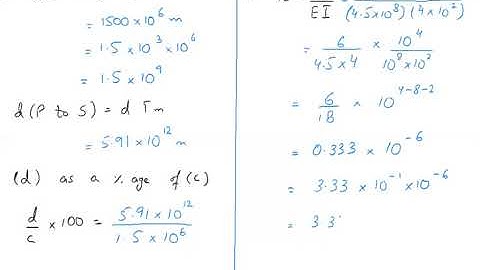 = 1500 × 10⁶ m
= 1.5 × 10³ × 10⁶
= 1.5 × 10⁹
d (P to S) = d Tm
= 5.91 × 10¹² m
(d) as a % age of (c)
d/c × 100 = 5.91 × 10¹² / 1.5 × 10⁶
EI (4.5×10⁸) (4×10²)
= 6/4.5×4 × 10⁴/10⁸×10²
= 6/18 × 10⁴⁻⁸⁻²
= 0.333 × 10⁻⁶
= 3.33 × 10⁻¹ × 10⁻⁶
= 3.3